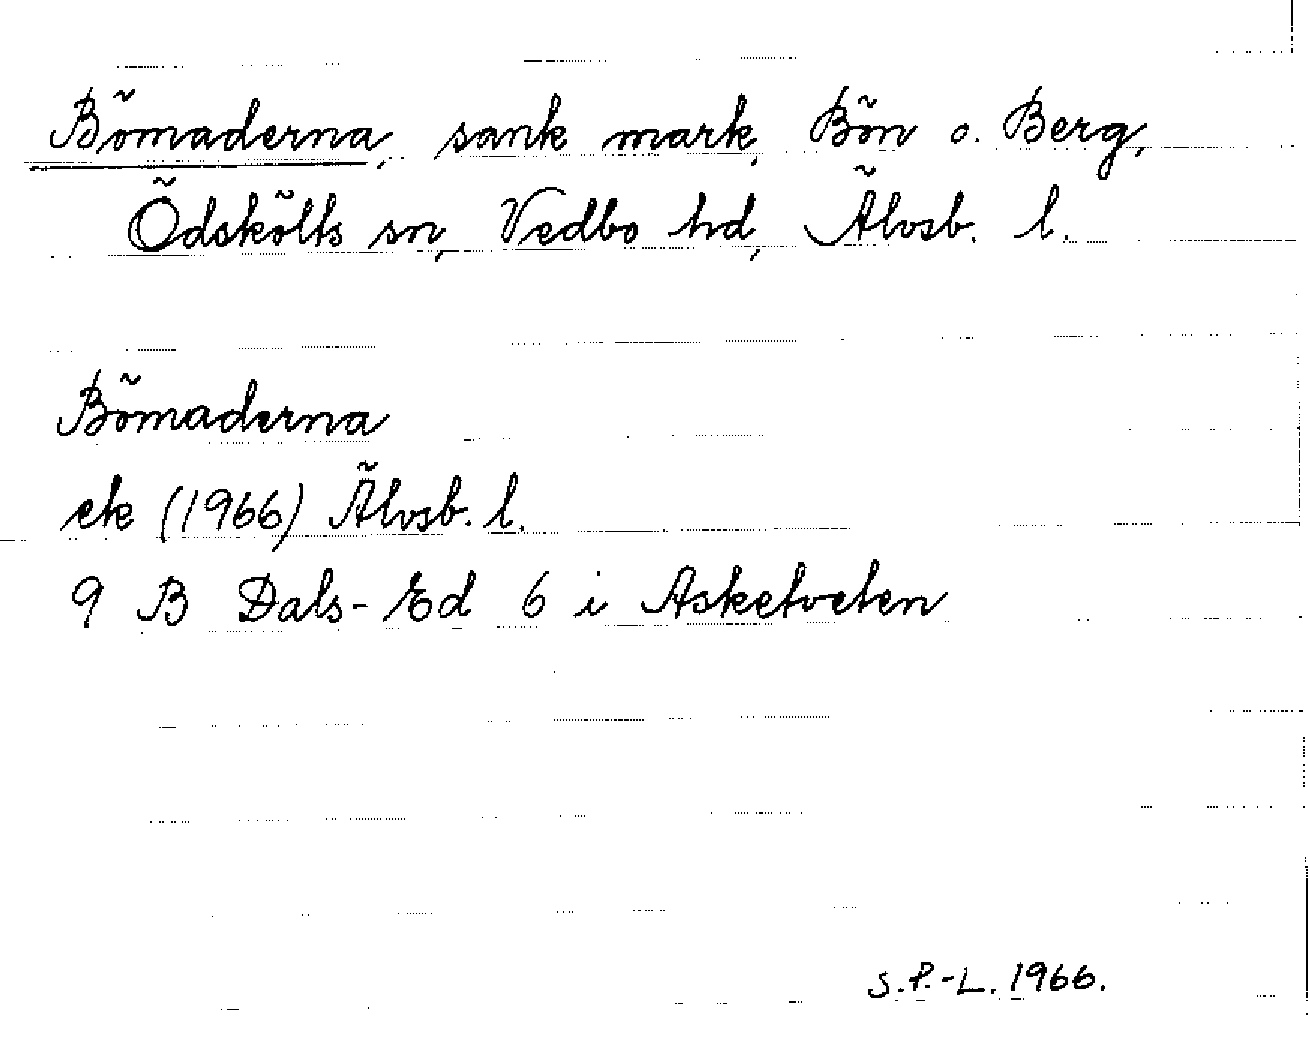 Bömaderna, sank mark, Bön o. Berg,
Ödskölts sn, Vedbo hd, Älvsb. l.
Bömaderna
ek (1966) Älvsb. l.
9 B Dals-Ed 6 i Asketveten
S.P.-L. 1966.